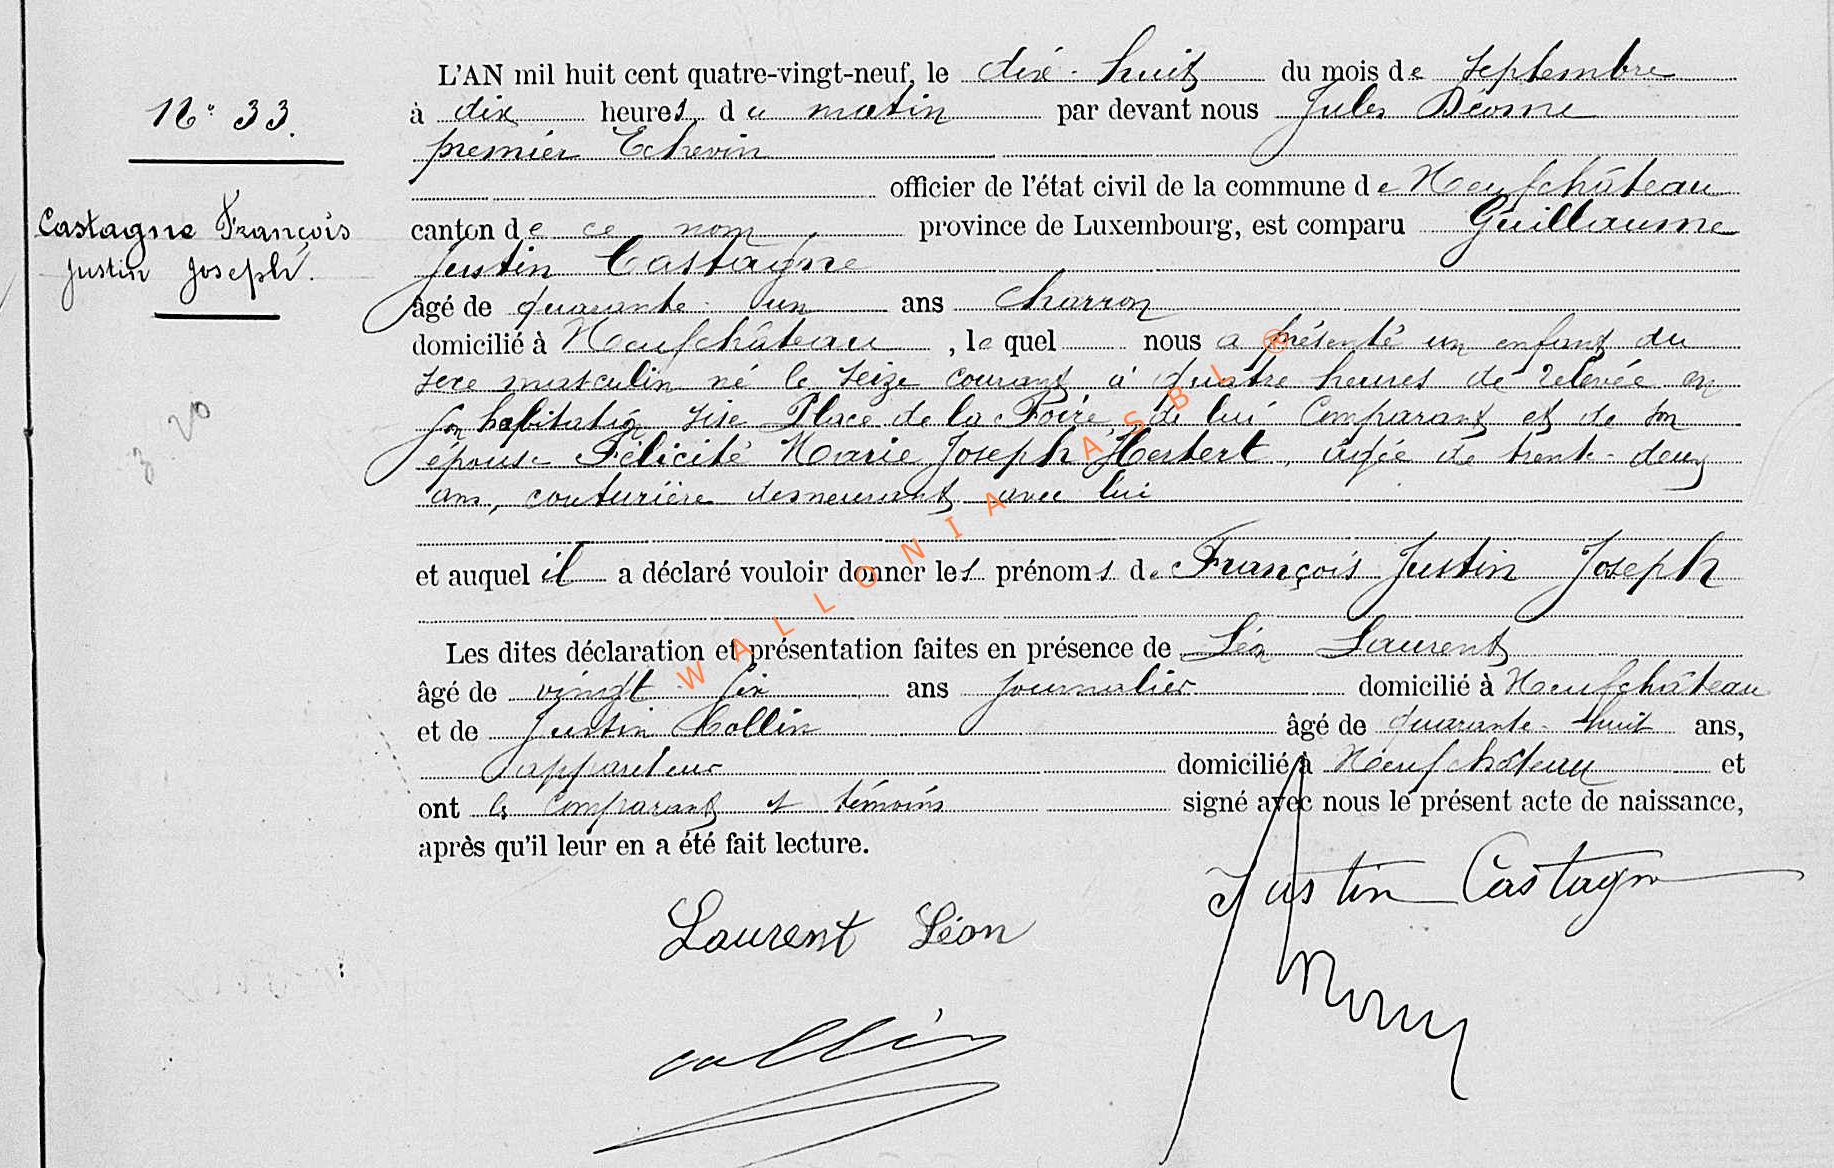 N° 33.
Castagne François
Justin Joseph.
L'AN mil huit cent quatre-vingt-neuf, le dix-huit du mois de Septembre
à dix heures du matin par devant nous Jules
premier Echevin
officier de l'état civil de la commune de Neufchâteau
canton de ce nom province de Luxembourg, est comparu Guillaume
Justin Castagne
âgé de quarante-un ans charron
domicilié à Neufchâteau, lequel nous a présenté un enfant du
sexe masculin né le seize courant à quatre heures de relevée en
son habitation sise Place de la Foire, de lui Comparant et de son
épouse Félicité Marie Joseph Herbert, âgée de trente-deux
ans, couturière demeurant avec lui
et auquel il a déclaré vouloir donner les prénoms de François Justin Joseph
Les dites déclaration et présentation faites en présence de Léon Laurent
âgé de vingt six ans journalier domicilié à Neufchâteau
et de Justin Collin âgé de quarante-huit ans,
appariteur domicilié à Neufchâteau et
ont les Comparant et témoins signé avec nous le présent acte de naissance,
après qu'il leur en a été fait lecture.
Justin Castagne
Laurent Léon
Collin
WALLONIA ASBL ®